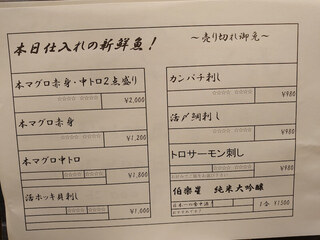 本日仕入れの新鮮魚！
～売り切れ御免～
本マグロ赤身・中トロ２点盛り
¥2,000
本マグロ赤身
¥1,200
本マグロ中トロ
¥1,800
活ホッキ貝刺し
¥1,000
カンパチ刺し
¥980
活〆鯛刺し
¥980
トロサーモン刺し
¥980
伯楽星 純米大吟醸
1合 ¥1500